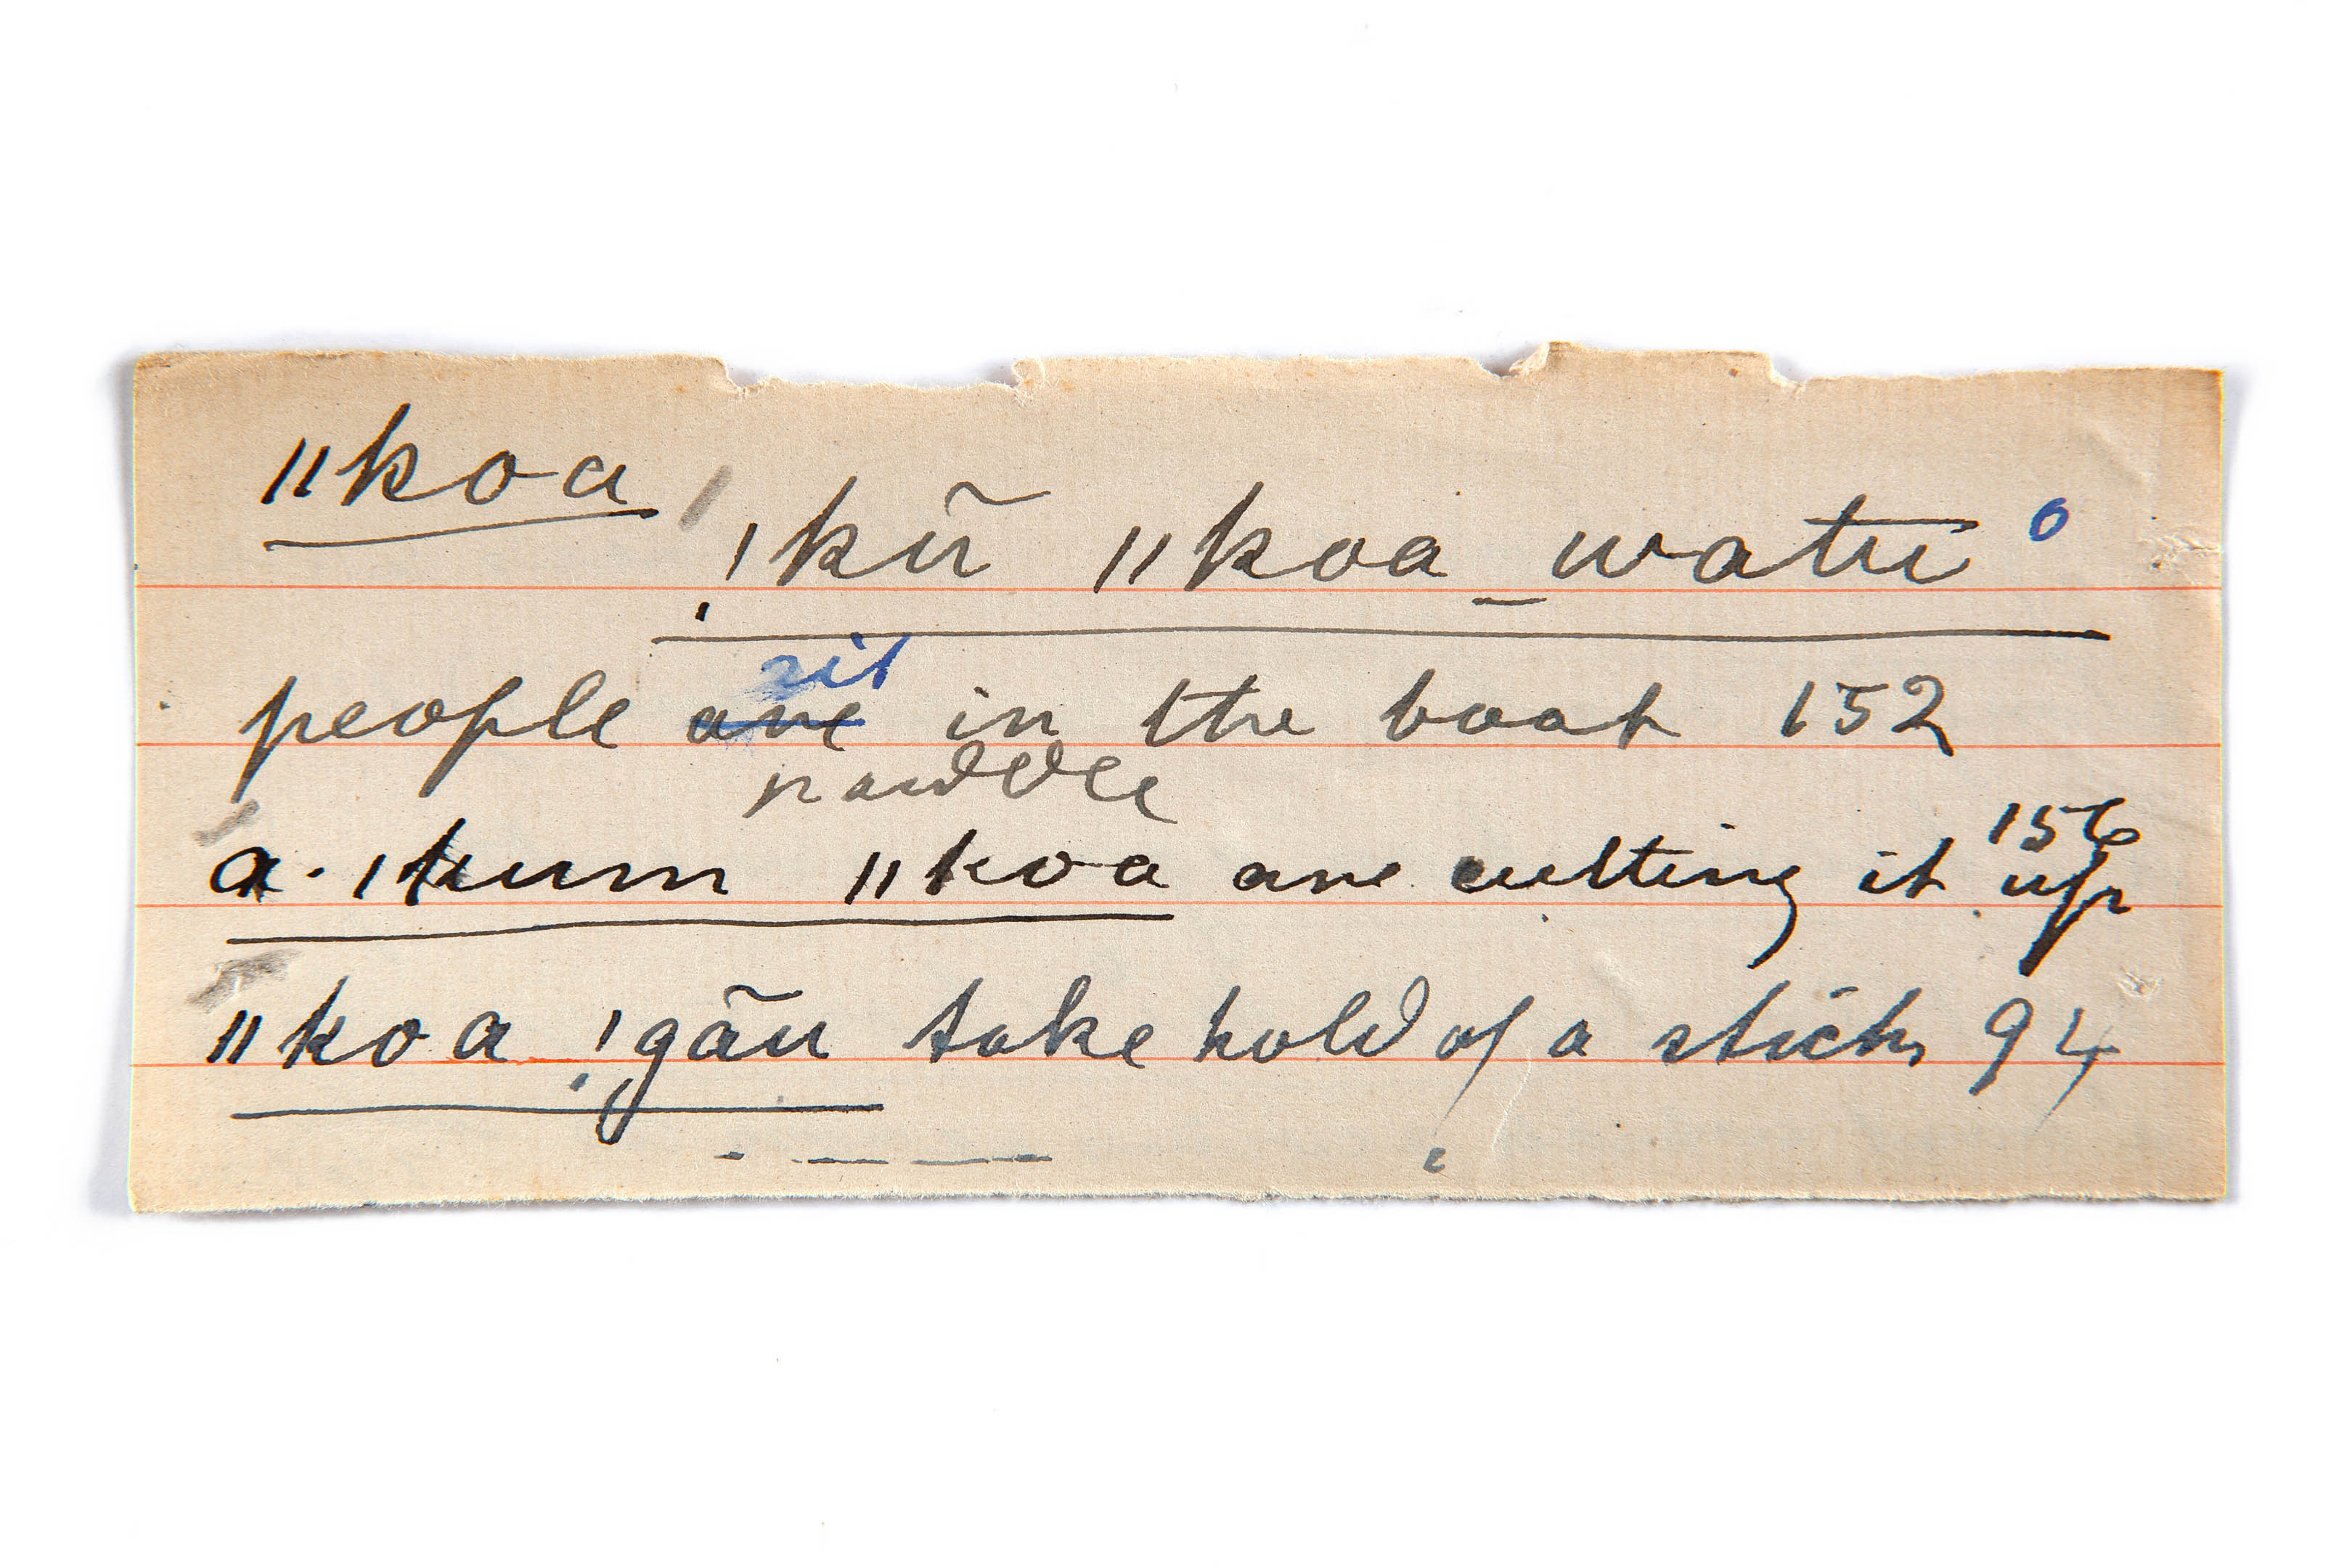 ǁkoa
!kũ ǁkoa watu o
people sit in the boat 152
paddle
a. ǀkum ǁkoa are cutting it up 156
ǁkoa !gãu take hold of a stick 94